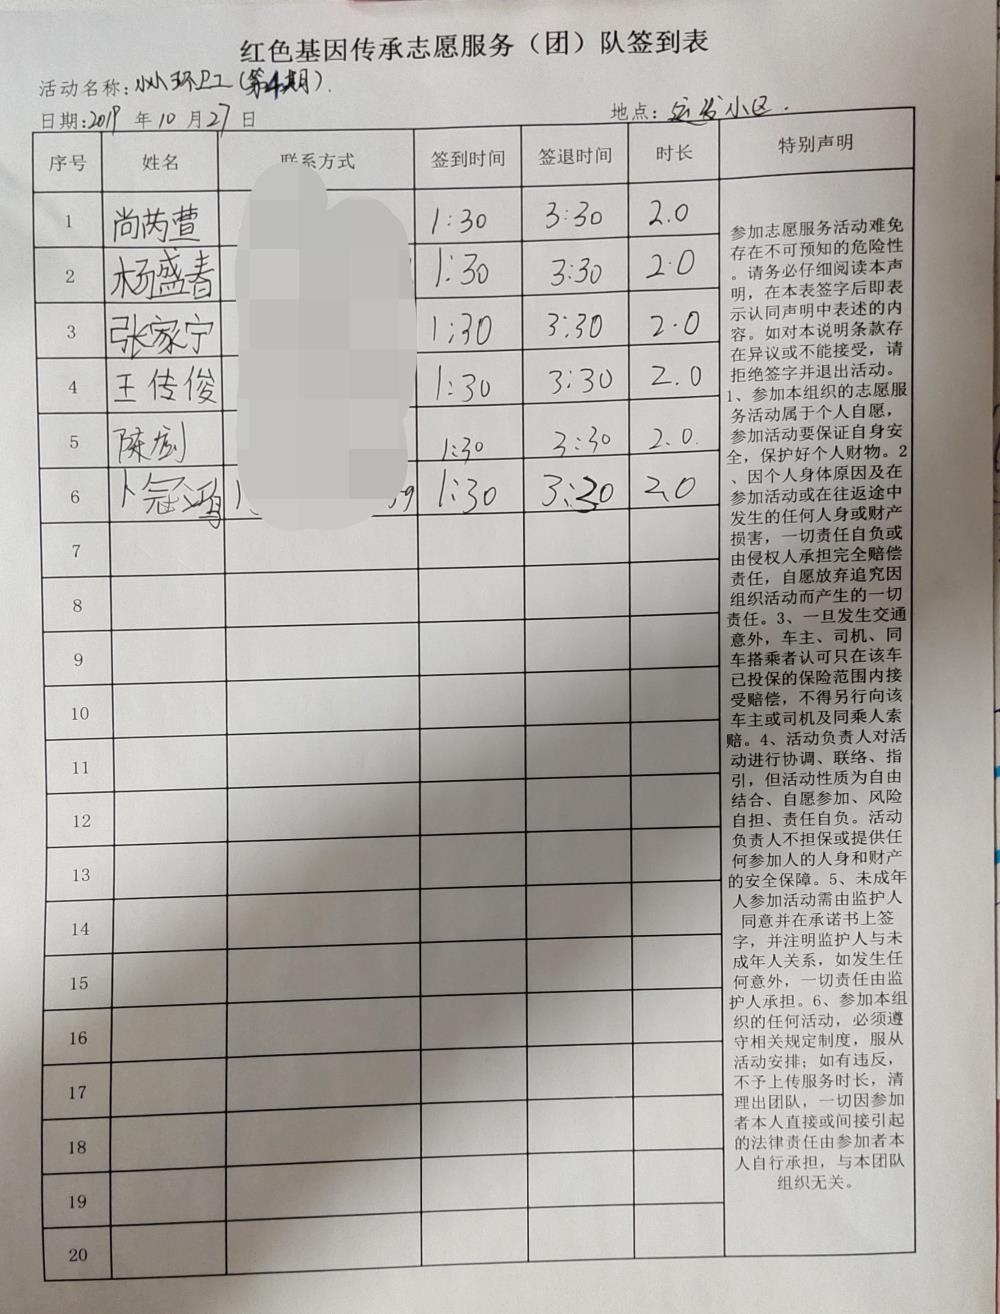 红色基因传承志愿服务（团）队签到表
活动名称：小小环卫工（第4期）.
日期：2019 年 10 月 27 日 地点： 小区.
序号 姓名 联系方式 签到时间 签退时间 时长 特别声明
1 尚芮萱 1:30 3:30 2.0
2 杨盛春 1:30 3:30 2.0
3 张家宁 1:30 3:30 2.0
4 王传俊 1:30 3:30 2.0
5 陈澍 1:30 3:30 2.0.
6 卜冠鸿 1:30 3:30 2.0
7
8
9
10
11
12
13
14
15
16
17
18
19
20
参加志愿服务活动难免
存在不可预知的危险性
。请务必仔细阅读本声
明，在本表签字后即表
示认同声明中表述的内
容。如对本说明条款存
在异议或不能接受，请
拒绝签字并退出活动。
1、参加本组织的志愿服
务活动属于个人自愿，
参加活动要保证自身安
全，保护好个人财物。2
、因个人身体原因及在
参加活动或在往返途中
发生的任何人身或财产
损害，一切责任自负或
由侵权人承担完全赔偿
责任，自愿放弃追究因
组织活动而产生的一切
责任。3、一旦发生交通
意外，车主、司机、同
车搭乘者认可只在该车
已投保的保险范围内接
受赔偿，不得另行向该
车主或司机及同乘人索
赔。4、活动负责人对活
动进行协调、联络、指
引，但活动性质为自由
结合、自愿参加、风险
自担、责任自负。活动
负责人不担保或提供任
何参加人的人身和财产
的安全保障。5、未成年
人参加活动需由监护人
同意并在承诺书上签
字，并注明监护人与未
成年人关系，如发生任
何意外，一切责任由监
护人承担。6、参加本组
织的任何活动，必须遵
守相关规定制度，服从
活动安排；如有违反，
不予上传服务时长，清
理出团队，一切因参加
者本人直接或间接引起
的法律责任由参加者本
人自行承担，与本团队
组织无关。